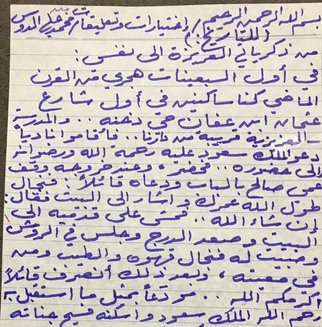 بسم الله الرحمن الرحيم / إختيارات وتعليقات / محمد بن عبدالله الدوس
(للتاريخ)
من ذكرياتي العزيزة الى نفسي:
في أول السبعينات هجري من القرن
الماضي كنا ساكنين في أول شارع
عثمان ابن عفان حي دخنه .. والمدرسة
العزيزية قريبة من دارنا .. فأقاموا نادياً
دعو الملك سعود عليه رحمة الله ورضوانه
الى حضوره .. فحضر وعند خروجه وقف
عمي صالح بالباب ودعاه قائلاً: فنجال
طول الله عمرك وأشار إلى البيت فقال:
إن شاء الله .. فمشى على قدميه إلى
البيت وصعد الدرج وجلس في الروشن
وصبيت له فنجال قهوه والطيب ومن
في معيته، وبعد ذلك أنصرف قائلاً
أكرمكم الله .. مودعاً بمثل ما استقبل به
رحم الله الملك سعود وأسكنه فسيح جناته